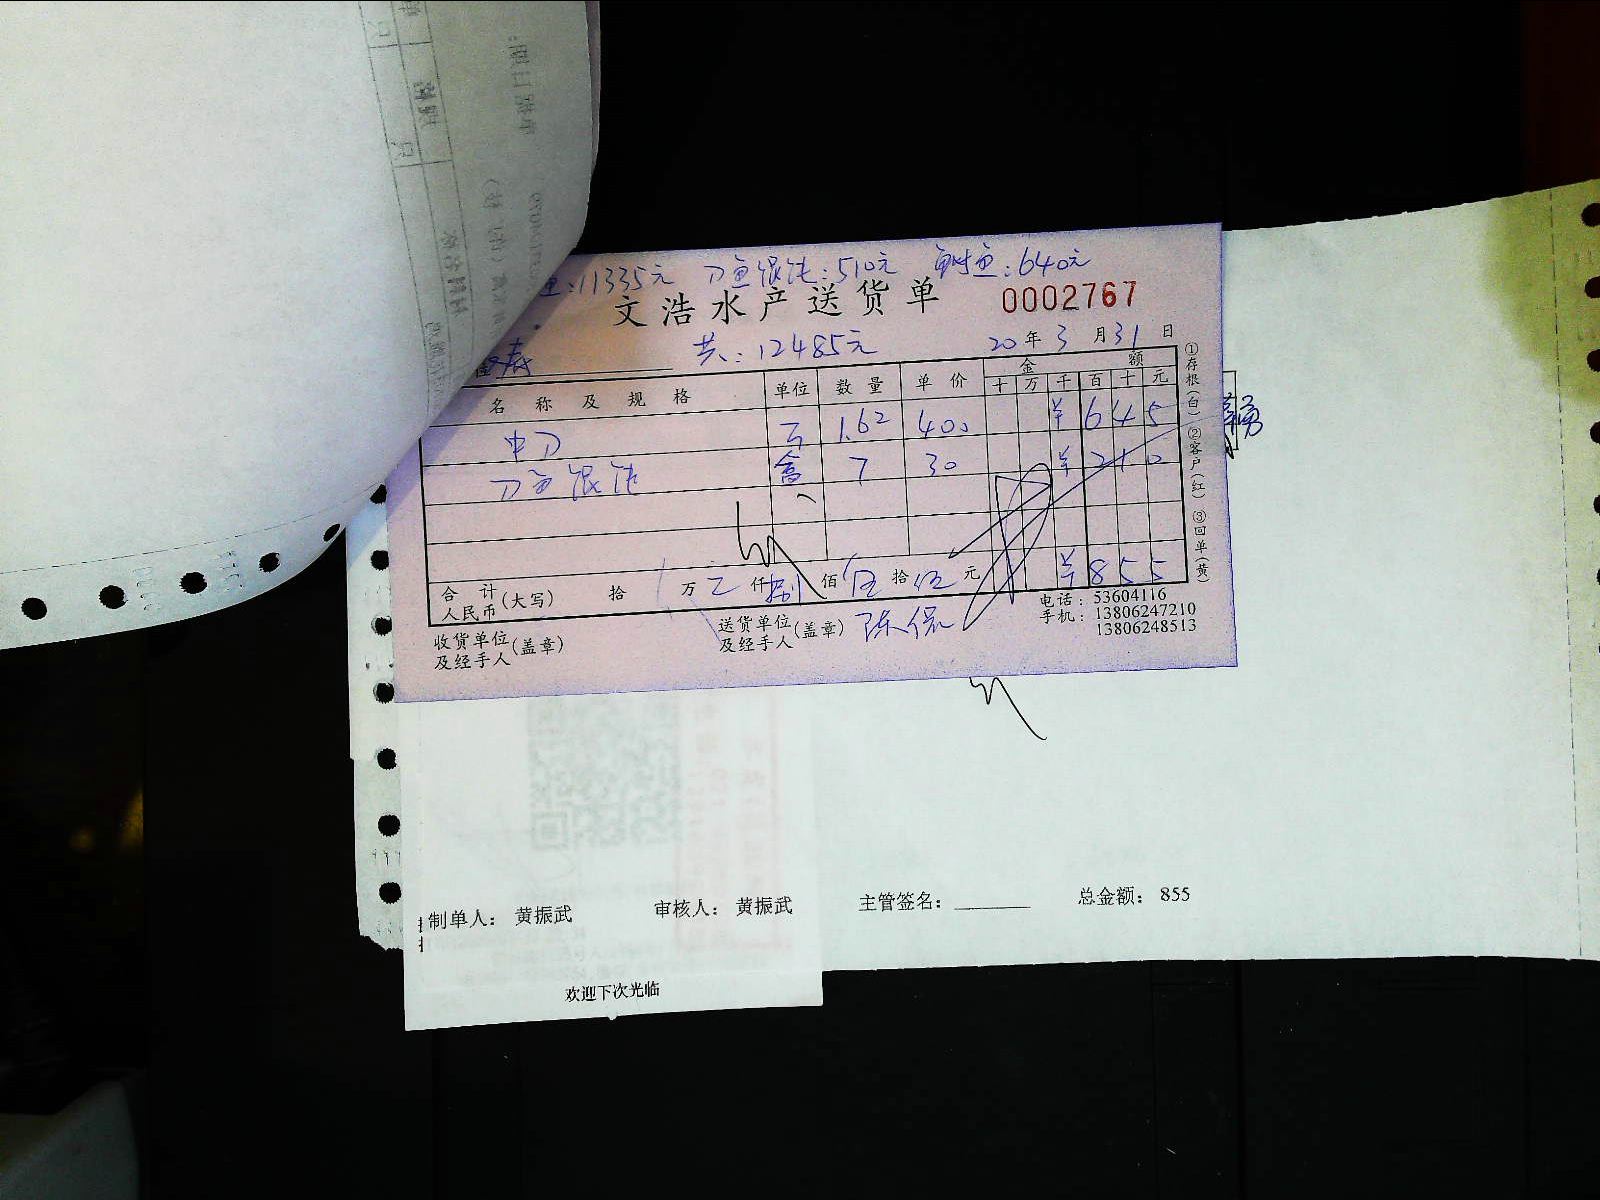 鱼:11335元 刀鱼馄饨:510元 鲥鱼:640元
文浩水产送货单 0002767
共:12485元 20年3月31日
名称及规格 单位 数量 单价 金额
十 万 千 百 十 元
中刀 1.62 400 ¥645
刀鱼馄饨 盒 7 30 ¥210
合计人民币(大写) 拾 万 仟 捌 佰 伍 拾 伍 元 ¥855
收货单位及经手人(盖章) 送货单位及经手人(盖章) 陈侃
电话:53604116
手机:13806247210
13806248513
①存根(白) ②客户(红) ③回单(黄)
制单人: 黄振武 审核人: 黄振武 主管签名: 总金额: 855
欢迎下次光临